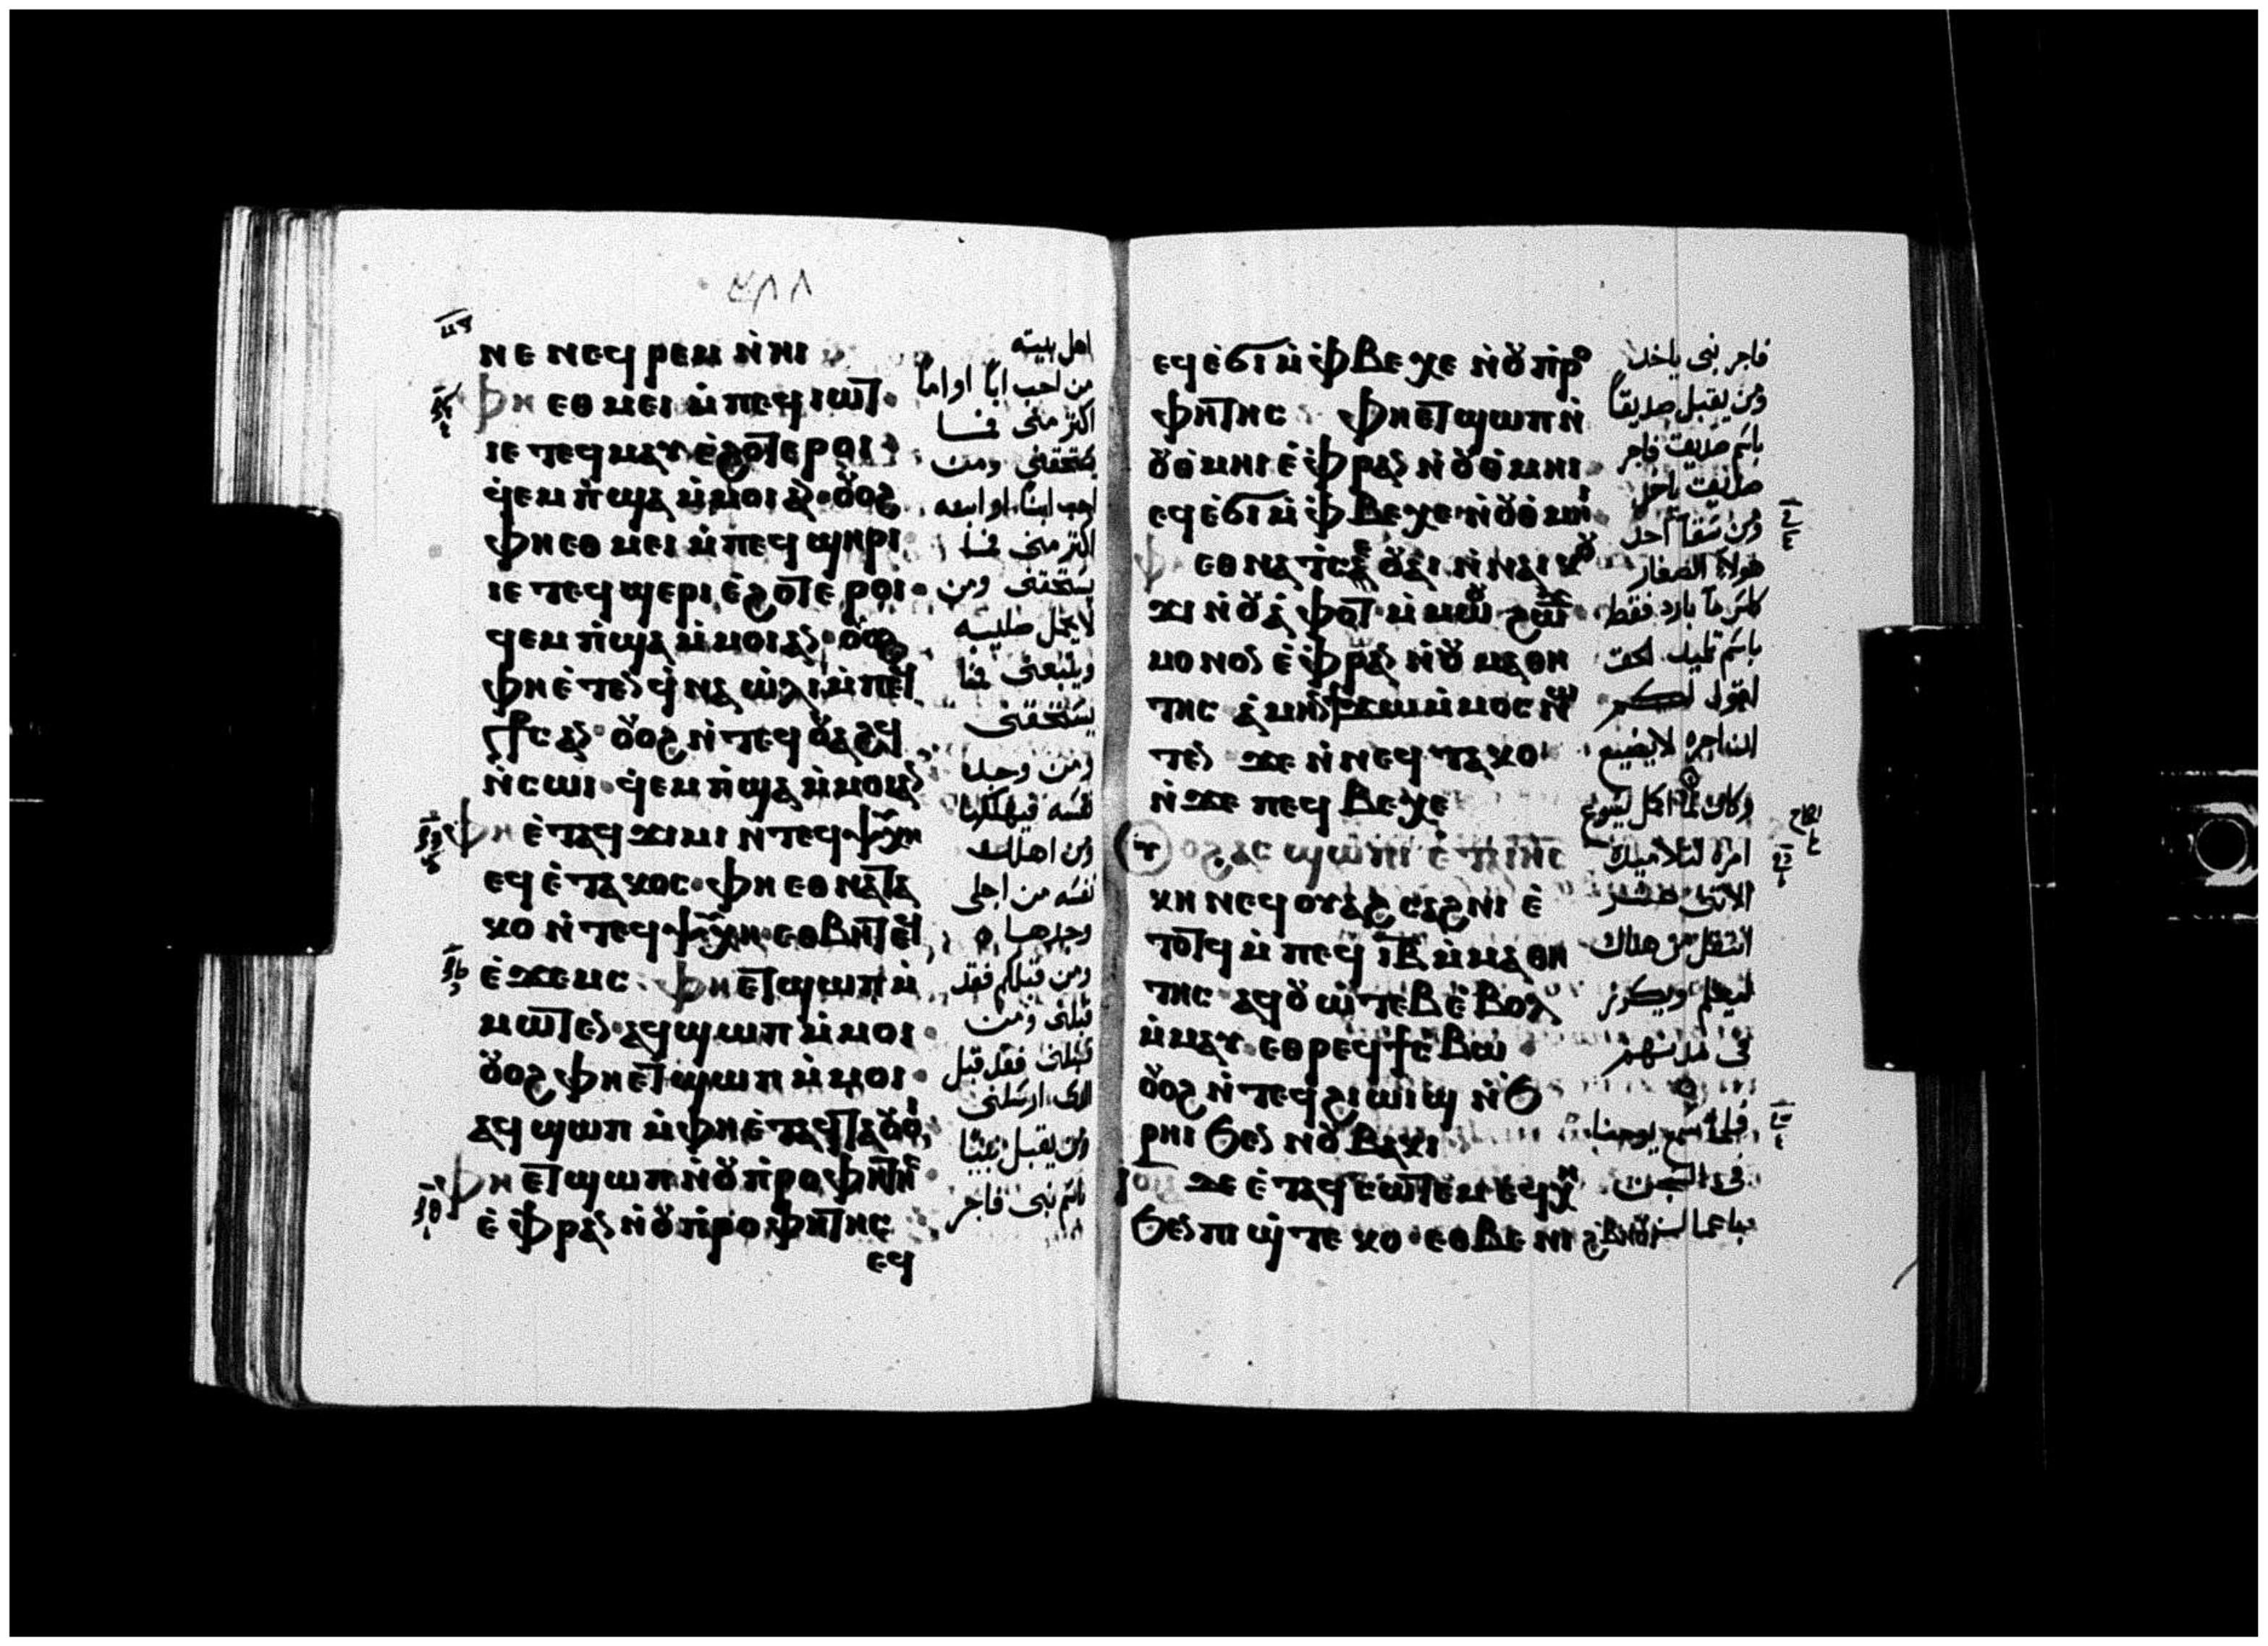 ⲛⲉ ⲛⲉϥ ⲣⲉⲙ ⲛ̀ⲏⲓ
ⲫⲏ ⲉⲑ ⲙⲉⲓ ⲙ̀ⲡⲉϥ ⲓⲱⲧ
ⲓⲉ ⲧⲉϥ ⲙⲁⲩ ⲉ̀ϩⲟⲧⲉ ⲣⲟⲓ
ϥ̀ⲉⲙ ⲡ̀ϣⲁ ⲙ̀ⲙⲟⲓ ⲁⲛ ⲟⲩⲟϩ
ⲫⲏ ⲉⲑ ⲙⲉⲓ ⲙ̀ⲡⲉϥ ϣⲏⲣⲓ
ⲓⲉ ⲧⲉϥ ϣⲉⲣⲓ ⲉ̀ϩⲟⲧⲉ ⲣⲟⲓ
ϥⲉⲙ ⲡ̀ϣⲁ ⲙ̀ⲙⲟⲓ ⲁⲛ ⲟⲩⲟϩ
ⲫⲏ ⲉ̀ⲧⲉⲛ ϥ̀ⲛⲁ ⲱ̀ⲗⲓ ⲙ̀ⲡⲉϥ
ⲥ︦ⲧ︦ⲥ ⲁⲛ ⲟⲩⲟϩ ⲛ̀ⲧⲉϥ ⲟⲩⲁϩϥ
ⲛ̀ⲥⲱⲓ ϥ̀ⲉⲙ ⲡ̀ϣⲁ ⲙ̀ⲙⲟⲓ ⲁⲛ
ⲫⲏ ⲉ̀ⲧⲁϥ ϫⲓⲙⲓ ⲛ̀ⲧⲉϥ ⲯⲩⲭⲏ
ⲉϥ ⲉ̀ⲧⲁⲕⲟⲥ ⲫⲏ ⲉⲑ ⲛⲁⲧⲁ
ⲕⲟ ⲛ̀ⲧⲉϥ ⲯⲩⲭⲏ ⲉⲑⲃⲏⲧ ⲉϥ
ⲉ̀ϫⲉⲙⲥ ⲫⲏ ⲉⲧ ϣⲱⲡ ⲙ̀
ⲙⲱⲧⲉⲛ ⲁϥ ϣⲱⲡ ⲙ̀ⲙⲟⲓ
ⲟⲩⲟϩ ⲫⲏ ⲉⲧ ϣⲱⲡ ⲙ̀ⲙⲟⲓ
ⲁϥ ϣⲱⲡ ⲙ̀ⲫⲏ ⲉ̀ⲧⲁϥ ⲧⲁⲟⲩⲟⲓ
ⲫⲏ ⲉⲧ ϣⲱⲡ ⲛ̀ⲟⲩ ⲡ̀ⲣⲟⲫⲏⲧⲏⲥ
ⲉ̀ ⲫ̀ⲣⲁⲛ ⲛ̀ⲟⲩ ⲡ̀ⲣⲟⲫⲏⲧⲏⲥ
ⲉϥ
اهل بيته
من احب ابا او اما
اكثر منى فما
يستحقنى ومن
احب ابنا او ابنه
اكثر منى فما
يستحقنى ومن
لا يحمل صليبه
ويتبعنى فما
يستحقنى
ومن وجد
نفسه فيهلكها
ومن اهلك
نفسه من اجلى
وجدها
ومن قبلكم فقد
قبلنى ومن
قبلنى فقد قبل
الذى ارسلنى
ومن يقبل نبيا
باسم نبى فاجر
ⲉϥ ⲉ̀ϭⲓ ⲙ̀ ⲫ̀ⲃⲉⲭⲉ ⲛ̀ⲟⲩ ⲡ̀ⲣⲟ
ⲫⲏⲧⲏⲥ ⲫⲏ ⲉⲧ ϣⲱⲡ ⲛ̀
ⲟⲩⲑ̀ⲙⲏⲓ ⲉ̀ ⲫ̀ⲣⲁⲛ ⲛ̀ⲟⲩⲑ̀ⲙⲏⲓ
ⲉϥ ⲉ̀ϭⲓ ⲙ̀ ⲫ̀ⲃⲉⲭⲉ ⲛ̀ⲟⲩⲑ̀ⲙⲏⲓ
ⲫ ⲉⲑ ⲛⲁ ⲧ̀ⲥⲉ ⲟⲩⲁⲓ ⲛ̀ⲛⲁⲓ ⲕⲟⲩ
ϫⲓ ⲛ̀ⲟⲩⲁ̀ⲫⲟⲧ ⲙ̀ⲙⲱⲟⲩ ϩⲱϫ
ⲙⲟⲛⲟⲛ ⲉ̀ ⲫ̀ⲣⲁⲛ ⲛ̀ⲟⲩ ⲙⲁⲑⲏ
ⲧⲏⲥ ⲁ̀ⲙⲏⲛ ϯϫⲱ ⲙ̀ⲙⲟⲥ ⲛⲱ
ⲧⲉⲛ ϫⲉ ⲛ̀ⲛⲉϥ ⲧⲁⲕⲟ
ⲛ̀ϫⲉ ⲡⲉϥ ⲃⲉⲭⲉ
ⲟⲩⲟϩ ⲁⲥ ϣⲱⲡⲓ ⲉ̀ⲧⲁⲓⲏⲥ
ⲕⲏⲛ ⲉϥ ⲟⲩⲁϩ ⲥⲁϩⲛⲓ ⲉ̀
ⲧⲟⲧϥ ⲙ̀ⲡⲉϥ ⲓ︦ⲃ︦ ⲙ̀ⲙⲁⲑⲏ
ⲧⲏⲥ ⲁϥ ⲟⲩⲱ̀ⲧⲉⲃ ⲉ̀ⲃⲟⲗ
ⲙ̀ⲙⲁⲩ ⲉⲑⲣⲉϥ ϯⲥ̀ⲃⲱ
ⲟⲩⲟϩ ⲛ̀ⲧⲉϥ ϩⲓⲱⲓϣ ⲛ̀ϧ
ⲣⲏⲓ ϧⲉⲛ ⲛⲟⲩ ⲃⲁⲕⲓ
ⲓⲱ ϫⲉ ⲉ̀ⲧⲁϥ ⲥⲱⲧⲉⲙ ⲉϥⲭⲏ
ϧⲉⲛ ⲡⲓ ϣ̀ⲧⲉⲕⲟ ⲉⲑⲃⲉ ⲛⲓ ϩ̀ⲃⲏⲟⲩⲓ
فاجر نبى ياخذ
ومن يقبل صديقا
باسم صديق فاجر
صديق ياخذ
ومن سقا احد
هولاء الصغار
كاس ما بارد فقط
باسم تلميد الحق
اقول لكم
ان اجره لا يضيع
وكان لما اكمل يسوع
امره لتلاميده
الاثنى عشر
انتقل من هناك
ليعلم ويكرز
فى مدنهم
فلما سمع يوحنا
فى السجن